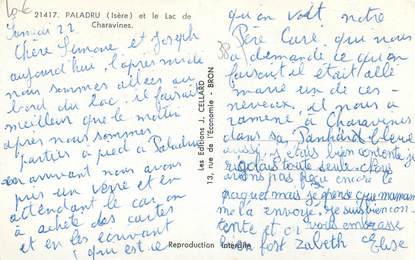 10€
21417. PALADRU (Isère) et le Lac de
Charavines.
22
Chère Simone et Joseph
aujourd'hui, l'après midi
nous sommes allées au
bord du lac, il faisait
meilleur que le matin
après nous sommes
parties à pied à Paladru
en arrivant nous avons
pris un verre et en
attendant le car on
a acheté des cartes
et en les écrivant
qui est-ce
Les Editions J. CELLARD
13, rue de l'Economie - BRON
Reproduction interdite
qu'on voit notre
Père Curé qui nous
a demandé ce qu'on
faisait il était allé
marié un de ces
neveux, et nous a
ramené à Charavines
dans sa Panhard bleue
aussi, j'étais bien contente je
rigolais toute seule. Nous
avons pas reçu encore le
paquet mais je pense que maman
me l'a envoyé. Je suis bien con-
tente et vous embrasse
bien fort Zabeth Elise